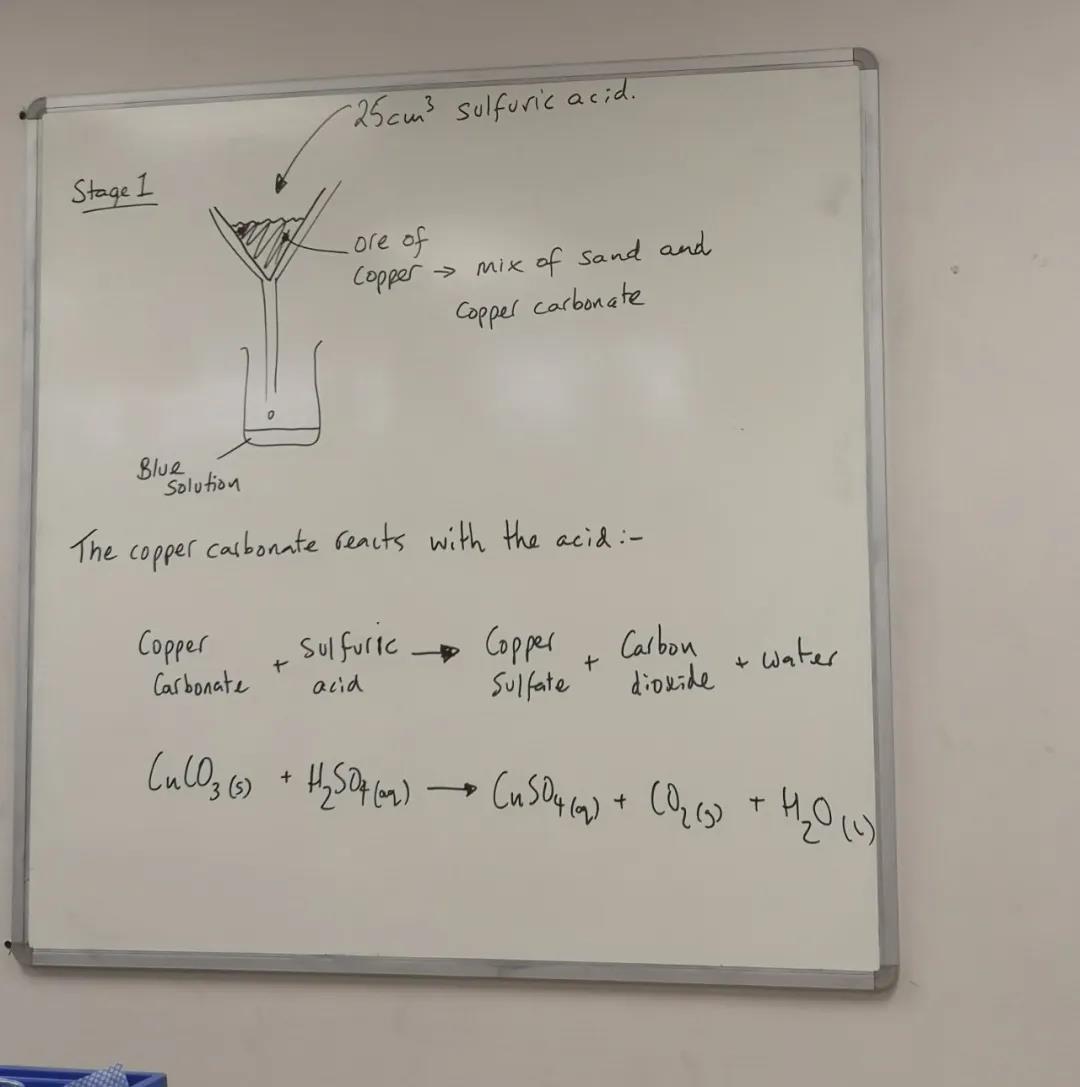 25cm³ sulfuric acid.
Stage 1
ore of
copper → mix of sand and
copper carbonate
Blue
solution
The copper carbonate reacts with the acid:-
Copper Carbonate + Sulfuric acid → Copper Sulfate + Carbon dioxide + water
CuCO₃(s) + H₂SO₄(aq) → CuSO₄(aq) + CO₂(g) + H₂O(l)